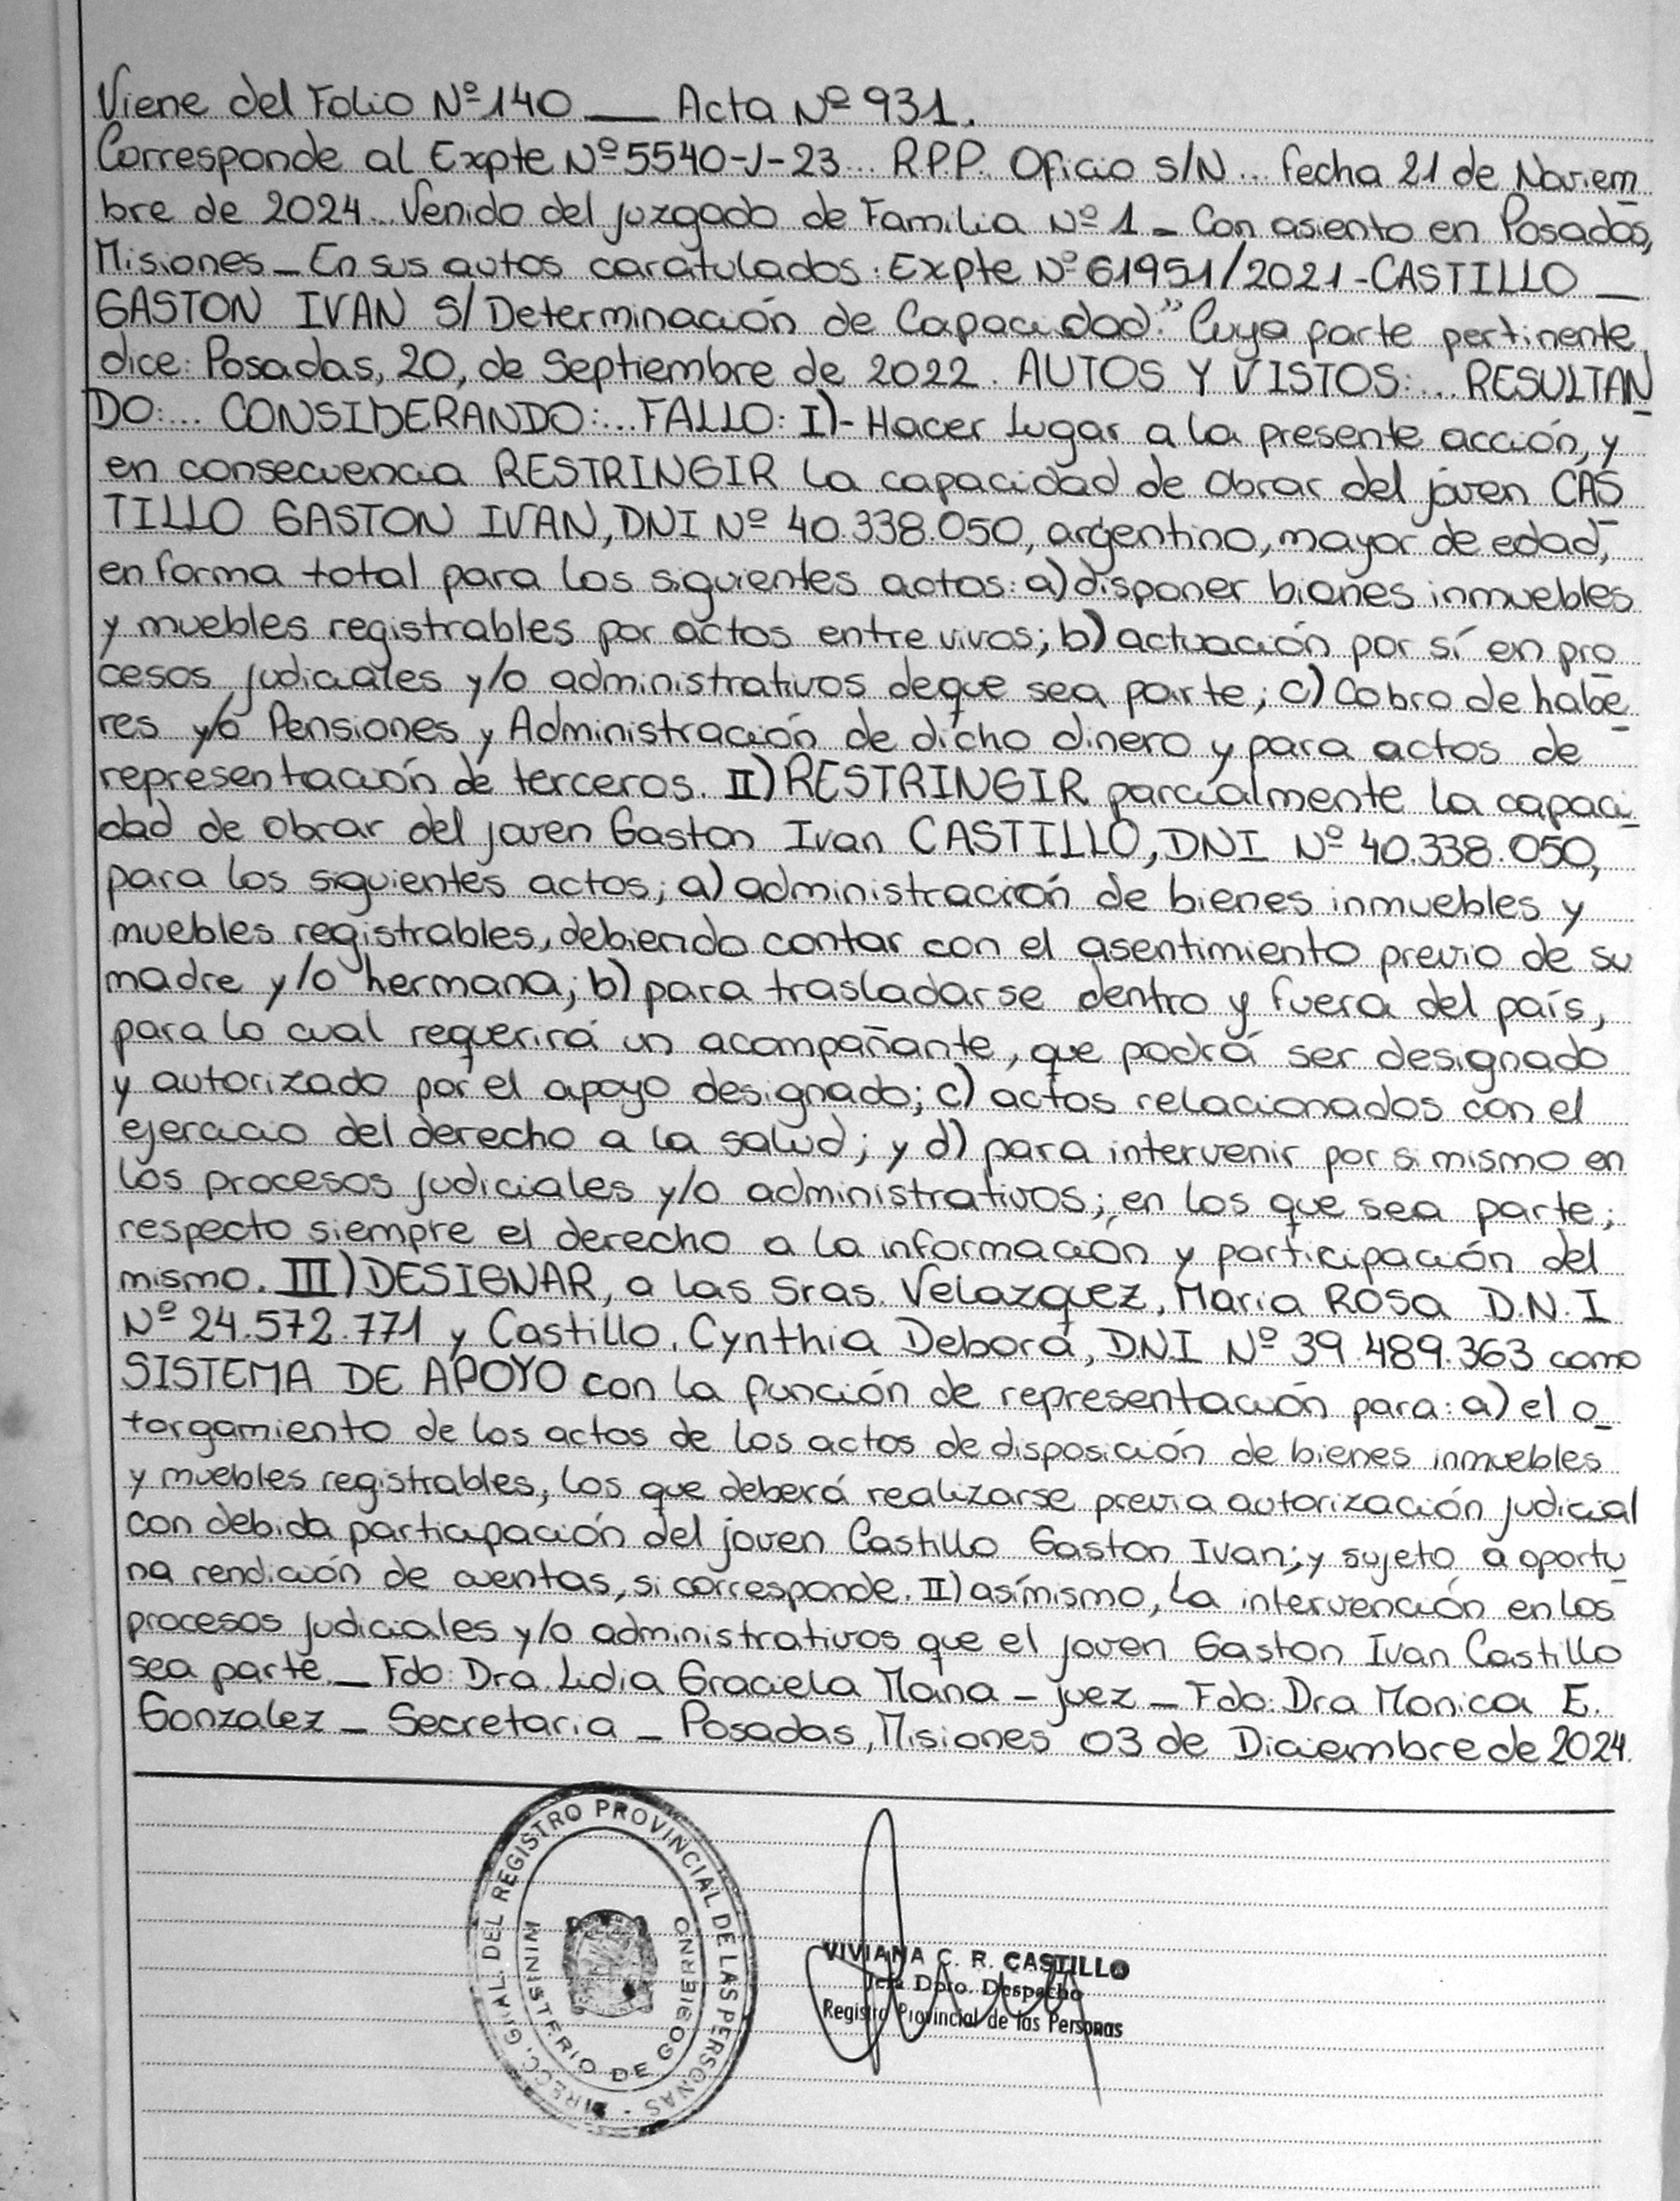 Viene del Folio Nº 140 __ Acta Nº 931.
Corresponde al Expte Nº 5540-J-23... R.P.P. Oficio S/N... fecha 21 de Noviem
bre de 2024. Venido del Juzgado de Familia Nº 1 _ Con asiento en Posadas,
Misiones _ En sus autos caratulados: Expte Nº 61951/2021 - CASTILLO _
GASTON IVAN S/ Determinación de Capacidad." Cuya parte pertinente
dice: Posadas, 20, de Septiembre de 2022. AUTOS Y VISTOS:... RESULTAN
DO:... CONSIDERANDO:... FALLO: I)- Hacer Lugar a la presente acción, y
en consecuencia RESTRINGIR la capacidad de Obrar del joven CAS
TILLO GASTON IVAN, DNI Nº 40.338.050, argentino, mayor de edad,
en forma total para los siguientes actos: a) disponer bienes inmuebles
y muebles registrables por actos entre vivos; b) actuación por sí en pro
cesos judiciales y/o administrativos de que sea parte; c) Cobro de habe
res y/o Pensiones y Administración de dicho dinero y para actos de
representación de terceros. II) RESTRINGIR parcialmente la capaci
dad de obrar del joven Gaston Ivan CASTILLO, DNI Nº 40.338.050,
para los siguientes actos; a) administración de bienes inmuebles y
muebles registrables, debiendo contar con el asentimiento previo de su
madre y/o hermana; b) para trasladarse dentro y fuera del país,
para lo cual requerirá un acompañante, que podrá ser designado
y autorizado por el apoyo designado; c) actos relacionados con el
ejercicio del derecho a la salud; y d) para intervenir por si mismo en
los procesos judiciales y/o administrativos; en los que sea parte;
respecto siempre el derecho a la información y participación del
mismo. III) DESIGNAR, a las Sras. Velazquez, Maria Rosa D.N.I
Nº 24.572.771 y Castillo, Cynthia Debora, DNI Nº 39.489.363 como
SISTEMA DE APOYO con la función de representación para: a) el o_
torgamiento de los actos de los actos de disposición de bienes inmuebles
y muebles registrables, los que deberá realizarse previa autorización judicial
con debida participación del joven Castillo Gaston Ivan; y sujeto a oportu
na rendición de cuentas, si corresponde. II) asímismo, la intervención en los
procesos judiciales y/o administrativos que el joven Gaston Ivan Castillo
sea parte _ Fdo: Dra. Lidia Graciela Mana - juez - Fdo: Dra Monica E.
Gonzalez _ Secretaria _ Posadas, Misiones 03 de Diciembre de 2024.
DIRECC. GRAL. DEL REGISTRO PROVINCIAL DE LAS PERSONAS -
MINISTERIO DE GOBIERNO
VIVIANA C. R. CASTILLO
Jefa Dpto. Despacho
Registro Provincial de las Personas